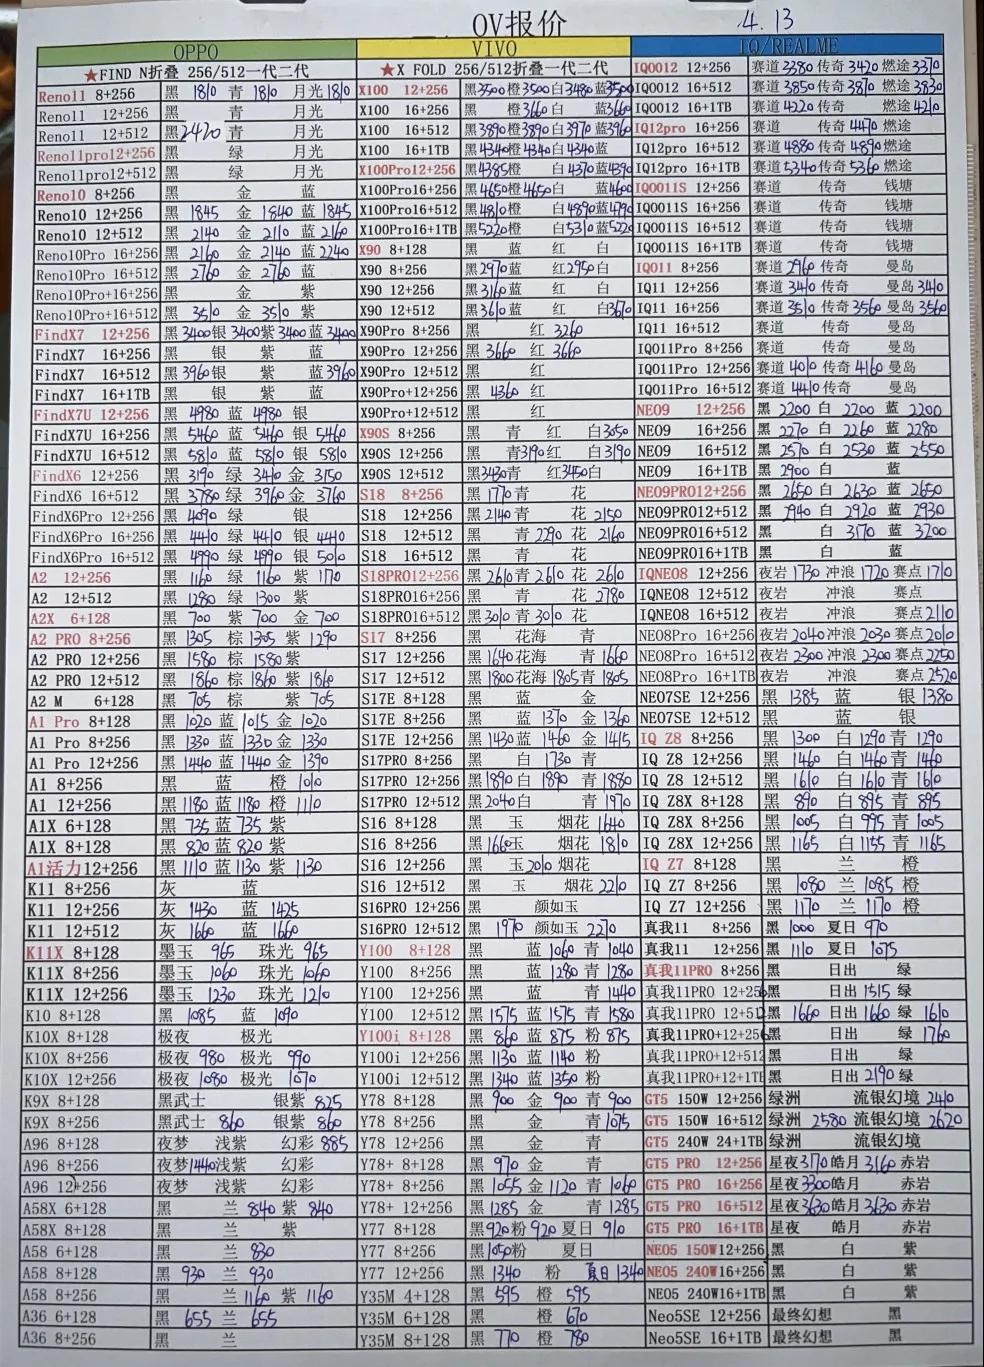 OV报价 4.13
OPPO VIVO IQ/REALME
★FIND N折叠 256/512一代二代 ★X FOLD 256/512折叠一代二代 IQ0012 12+256 赛道 3380 传奇 3420 燃途 3370
Reno11 8+256 黑 1810 青 1810 月光 1810 X100 12+256 黑3500橙3500白3480蓝3500 IQ012 16+512 赛道 3850 传奇 3870 燃途 3830
Reno11 12+256 黑 青 月光 X100 16+256 黑 橙3660白 蓝3660 IQ012 16+1TB 赛道 4220 传奇 燃途 4210
Reno11 12+512 黑2420 青 月光 X100 16+512 黑3890橙3890白3970蓝3960 IQ12pro 16+256 赛道 传奇 4470 燃途
Reno11pro12+256 黑 绿 月光 X100 16+1TB 黑4340橙4340白4340蓝 IQ12pro 16+512 赛道 4880 传奇 4890 燃途
Reno11pro12+512 黑 绿 月光 X100Pro12+256 黑4385橙 白4370蓝4390 IQ12pro 16+1TB 赛道 5340 传奇 5360 燃途
Reno10 8+256 黑 金 蓝 X100Pro16+256 黑4650橙4650白 蓝4600 IQO011S 12+256 赛道 传奇 钱塘
Reno10 12+256 黑 1845 金 1840 蓝 1845 X100Pro16+512 黑4810橙 白4890蓝4790 IQO011S 16+256 赛道 传奇 钱塘
Reno10 12+512 黑 2140 金 2110 蓝 2160 X100Pro16+1TB 黑5220橙 白5310蓝5220 IQO011S 16+512 赛道 传奇 钱塘
Reno10Pro 16+256 黑 2160 金 2140 蓝 2240 X90 8+128 黑 蓝 红 白 IQO011S 16+1TB 赛道 传奇 钱塘
Reno10Pro 16+512 黑 2760 金 2760 蓝 X90 8+256 黑2970蓝 红2950白 IQ011 8+256 赛道 2960 传奇 曼岛
Reno10Pro+16+256 黑 金 紫 X90 12+256 黑3160蓝 红 白 IQ11 12+256 赛道 3410 传奇 曼岛 3410
Reno10Pro+16+512 黑 3510 金 3510 紫 X90 12+512 黑3610蓝 红 白3670 IQ11 16+256 赛道 3510 传奇 3560 曼岛 3560
FindX7 12+256 黑3400银3400紫3400蓝3400 X90Pro 8+256 黑 红 3260 IQ11 16+512 赛道 传奇 曼岛
FindX7 16+256 黑 银 紫 蓝 X90Pro 12+256 黑 3660 红 3660 IQO11Pro 8+256 赛道 传奇 曼岛
FindX7 16+512 黑3960银 紫 蓝3960 X90Pro 12+512 黑 红 IQO11Pro 12+256 赛道 4010 传奇 4160 曼岛
FindX7 16+1TB 黑 银 紫 蓝 X90Pro+12+256 黑 4360 红 IQO11Pro 16+512 赛道 4410 传奇 曼岛
FindX7U 12+256 黑 4980 蓝 4980 银 X90Pro+12+512 黑 红 NEO9 12+256 黑 2200 白 2200 蓝 2200
FindX7U 16+256 黑 5460 蓝 5460 银 5460 X90S 8+256 黑 青 红 白3050 NEO9 16+256 黑 2270 白 2260 蓝 2280
FindX7U 16+512 黑 5810 蓝 5810 银 5810 X90S 12+256 黑 青3190红 白3190 NEO9 16+512 黑 2570 白 2530 蓝 2550
FindX6 12+256 黑 3190 绿 3410 金 3150 X90S 12+512 黑3430青 红3450白 NEO9 16+1TB 黑 2900 白 蓝
FindX6 16+512 黑 3780 绿 3960 金 3760 S18 8+256 黑 1770 青 花 NEO9PRO12+256 黑 2650 白 2630 蓝 2650
FindX6Pro 12+256 黑 4090 绿 银 S18 12+256 黑 2140 青 花 2150 NEO9PRO12+512 黑 2940 白 2920 蓝 2930
FindX6Pro 16+256 黑 4410 绿 4410 银 4410 S18 12+512 黑 青 2290 花 2160 NEO9PRO16+512 黑 白 3170 蓝 3200
FindX6Pro 16+512 黑 4990 绿 4990 银 5010 S18 16+512 黑 青 花 NEO9PRO16+1TB 黑 白 蓝
A2 12+256 黑 1160 绿 1160 紫 1170 S18PRO12+256 黑 2610 青 2610 花 2610 IQNEO8 12+256 夜岩 1730 冲浪 1720 赛点 1710
A2 12+512 黑 1280 绿 1300 紫 S18PRO16+256 黑 青 花 2780 IQNEO8 12+512 夜岩 冲浪 赛点
A2X 6+128 黑 700 紫 700 金 700 S18PRO16+512 黑 3010 青 3010 花 IQNEO8 16+512 夜岩 冲浪 赛点 2110
A2 PRO 8+256 黑 1305 棕 1305 紫 1290 S17 8+256 黑 花海 青 NEO8Pro 16+256 夜岩 2040 冲浪 2030 赛点 2010
A2 PRO 12+256 黑 1580 棕 1580 紫 S17 12+256 黑 1640 花海 青 1660 NEO8Pro 16+512 夜岩 2300 冲浪 2300 赛点 2250
A2 PRO 12+512 黑 1860 棕 1860 紫 1860 S17 12+512 黑 1800 花海 1805 青 1805 NEO8Pro 16+1TB 夜岩 冲浪 赛点 2520
A2 M 6+128 黑 705 棕 紫 705 S17E 8+128 黑 蓝 金 NEO7SE 12+256 黑 1385 蓝 银 1380
A1 Pro 8+128 黑 1020 蓝 1015 金 1020 S17E 8+256 黑 蓝 1370 金 1360 NEO7SE 12+512 黑 蓝 银
A1 Pro 8+256 黑 1330 蓝 1330 金 1330 S17E 12+256 黑 1430 蓝 1460 金 1415 IQ Z8 8+256 黑 1300 白 1290 青 1290
A1 Pro 12+256 黑 1440 蓝 1440 金 1390 S17PRO 8+256 黑 白 1730 青 IQ Z8 12+256 黑 1460 白 1460 青 1460
A1 8+256 黑 蓝 橙 1010 S17PRO 12+256 黑 1890 白 1890 青 1880 IQ Z8 12+512 黑 1610 白 1610 青 1610
A1 12+256 黑 1180 蓝 1180 橙 1110 S17PRO 12+512 黑 2040 白 青 1970 IQ Z8X 8+128 黑 890 白 895 青 895
A1X 6+128 黑 735 蓝 735 紫 S16 8+128 黑 玉 烟花 1640 IQ Z8X 8+256 黑 1005 白 995 青 1005
A1X 8+128 黑 820 蓝 820 紫 S16 8+256 黑 1660 玉 烟花 1810 IQ Z8X 12+256 黑 1165 白 1155 青 1165
A1活力12+256 黑 1110 蓝 1130 紫 1130 S16 12+256 黑 玉 2010 烟花 IQ Z7 8+128 黑 兰 橙
K11 8+256 灰 蓝 S16 12+512 黑 玉 烟花 2210 IQ Z7 8+256 黑 1080 兰 1085 橙
K11 12+256 灰 1430 蓝 1425 S16PRO 12+256 黑 颜如玉 IQ Z7 12+256 黑 1170 兰 1170 橙
K11 12+512 灰 1660 蓝 1660 S16PRO 12+512 黑 1970 颜如玉 2270 真我11 8+256 黑 1000 夏日 970
K11X 8+128 墨玉 965 珠光 965 Y100 8+128 黑 蓝 1060 青 1040 真我11 12+256 黑 1110 夏日 1075
K11X 8+256 墨玉 1060 珠光 1060 Y100 8+256 黑 蓝 1280 青 1280 真我11PRO 8+256 黑 日出 绿
K11X 12+256 墨玉 1230 珠光 1210 Y100 12+256 黑 蓝 青 1440 真我11PRO 12+256 黑 日出 1515 绿
K10 8+128 黑 1085 蓝 1090 Y100 12+512 黑 1575 蓝 1575 青 1580 真我11PRO 12+512 黑 1660 日出 1660 绿 1610
K10X 8+128 极夜 极光 Y100i 8+128 黑 860 蓝 875 粉 875 真我11PRO+12+256 黑 日出 绿 1760
K10X 8+256 极夜 980 极光 990 Y100i 12+256 黑 1130 蓝 1140 粉 真我11PRO+12+512 黑 日出 绿
K10X 12+256 极夜 1080 极光 1070 Y100i 12+512 黑 1340 蓝 1350 粉 真我11PRO+12+1TB 黑 日出 2190 绿
K9X 8+128 黑武士 银紫 825 Y78 8+128 黑 900 金 900 青 900 GT5 150W 12+256 绿洲 流银幻境 2410
K9X 8+256 黑武士 860 银紫 860 Y78 8+256 黑 金 青 1075 GT5 150W 16+512 绿洲 2580 流银幻境 2620
A96 8+128 夜梦 浅紫 幻彩 885 Y78 12+256 黑 金 青 GT5 240W 24+1TB 绿洲 流银幻境
A96 8+256 夜梦1440浅紫 幻彩 Y78+ 8+128 黑 970 金 青 GT5 PRO 12+256 星夜3170皓月 3160 赤岩
A96 12+256 夜梦 浅紫 幻彩 Y78+ 8+256 黑 1055 金 1120 青 1060 GT5 PRO 16+256 星夜3300皓月 赤岩
A58X 6+128 黑 兰 840 紫 840 Y78+ 12+256 黑 1285 金 青 1285 GT5 PRO 16+512 星夜3630皓月 3630 赤岩
A58X 8+128 黑 兰 紫 Y77 8+128 黑920粉 920 夏日 910 GT5 PRO 16+1TB 星夜 皓月 赤岩
A58 6+128 黑 兰 830 Y77 8+256 黑1050粉 夏日 NEO5 150W12+256 黑 白 紫
A58 8+128 黑 930 兰 930 Y77 12+256 黑 1340 粉 夏日 1340 NEO5 240W16+256 黑 白 紫
A58 8+256 黑 兰 1160 紫 1160 Y35M 4+128 黑 595 橙 595 NEO5 240W16+1TB 黑 白 紫
A36 6+128 黑 655 兰 655 Y35M 6+128 黑 橙 670 Neo5SE 12+256 最终幻想 黑
A36 8+256 黑 兰 Y35M 8+128 黑 770 橙 780 Neo5SE 16+1TB 最终幻想 黑